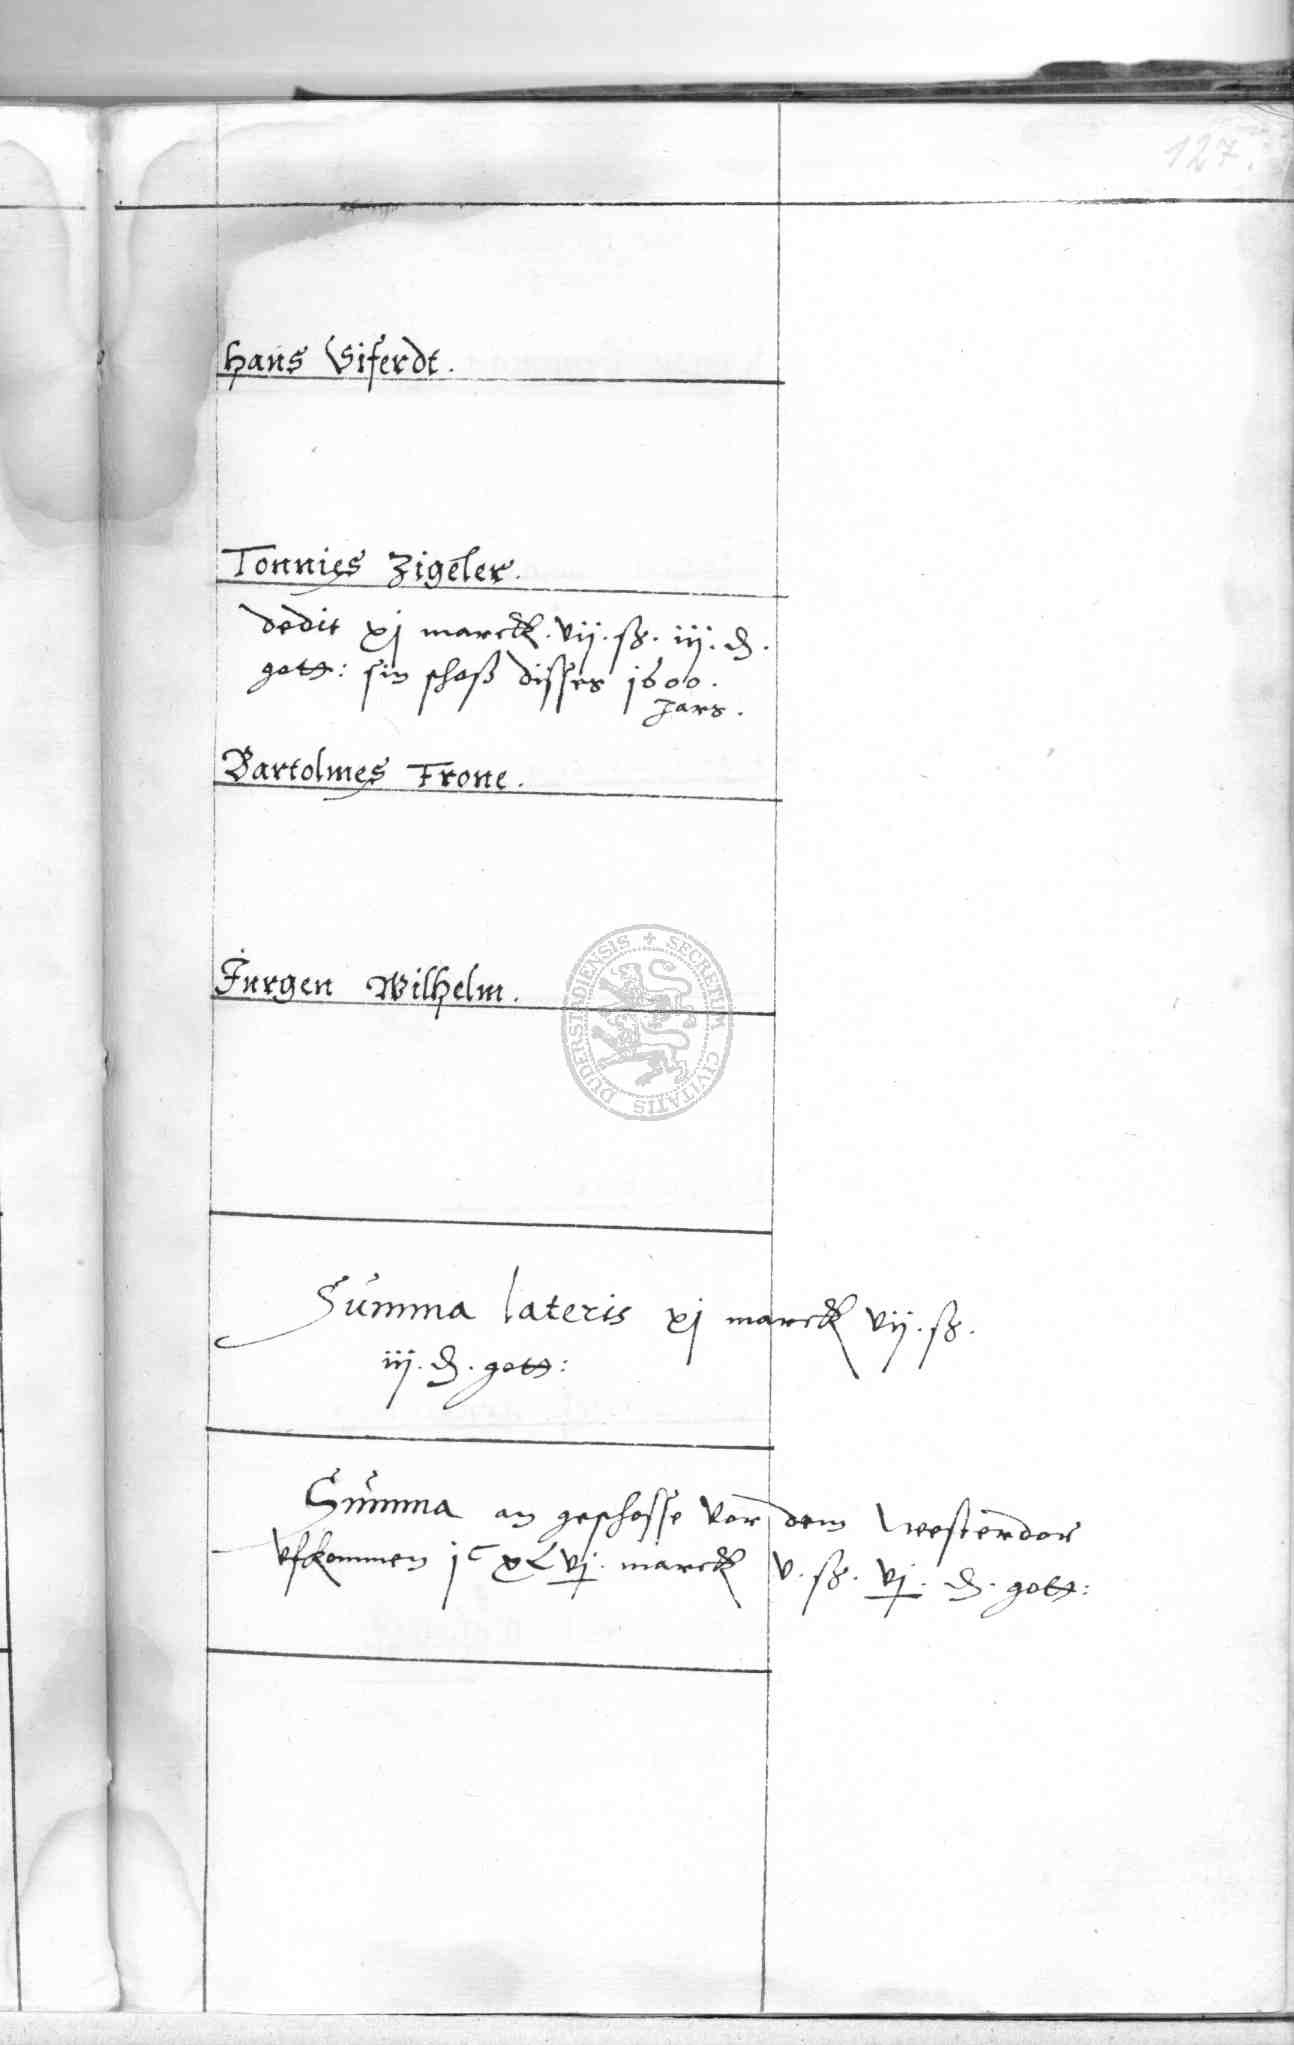 127.
Hans Siferdt.
Tonnies Zigeler.
dedit xj marck. vij. ß. iij. ₰.
gott: sin schoß disses 1600.
Jars.
Bartolmes Frone.
Jurgen Wilhelm.
SECRETUM CIVITATIS DUDERSTADIENSIS
Summa lateris xj marck vij. ß.
iij. ₰. gott:
Summa an geschosse vor dem Westerdor
ufkommen jᶜ xLvj. marck v. ß. vj. ₰. gott: